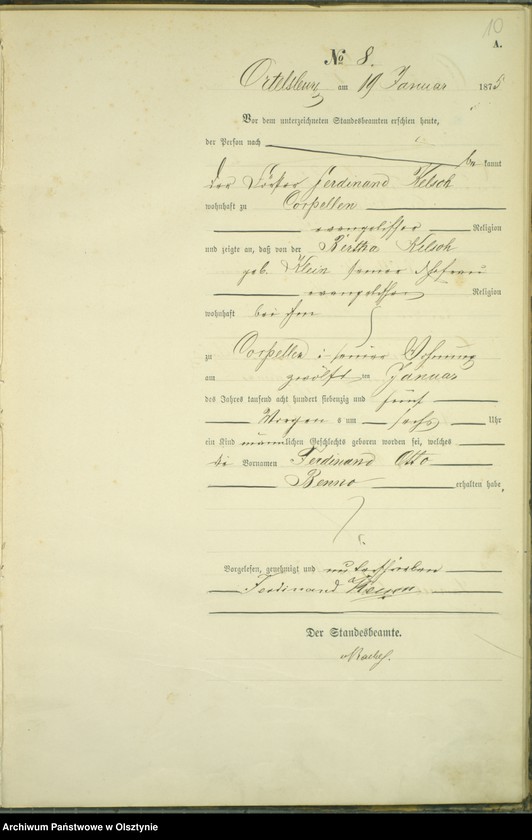 10
A.
No 8.
Ortelsburg am 19 Januar 1875
Vor dem unterzeichneten Standesbeamten erschien heute,
der Person nach be kannt
der Ferdinand Kelsch
wohnhaft zu Corpellen
evangelischer Religion
und zeigte an, daß von der Bertha Kelsch
geb. Klein seiner Ehefrau
evangelischer Religion
wohnhaft bei ihm
zu Corpellen in seiner Wohnung
am zwölften Januar
des Jahres tausend acht hundert siebenzig und fünf
Morgens um sechs Uhr
ein Kind männlichen Geschlechts geboren worden sei, welches
die Vornamen Ferdinand Otto
Benno erhalten habe,
Vorgelesen, genehmigt und unterschrieben
Ferdinand
Der Standesbeamte.
Archiwum Państwowe w Olsztynie